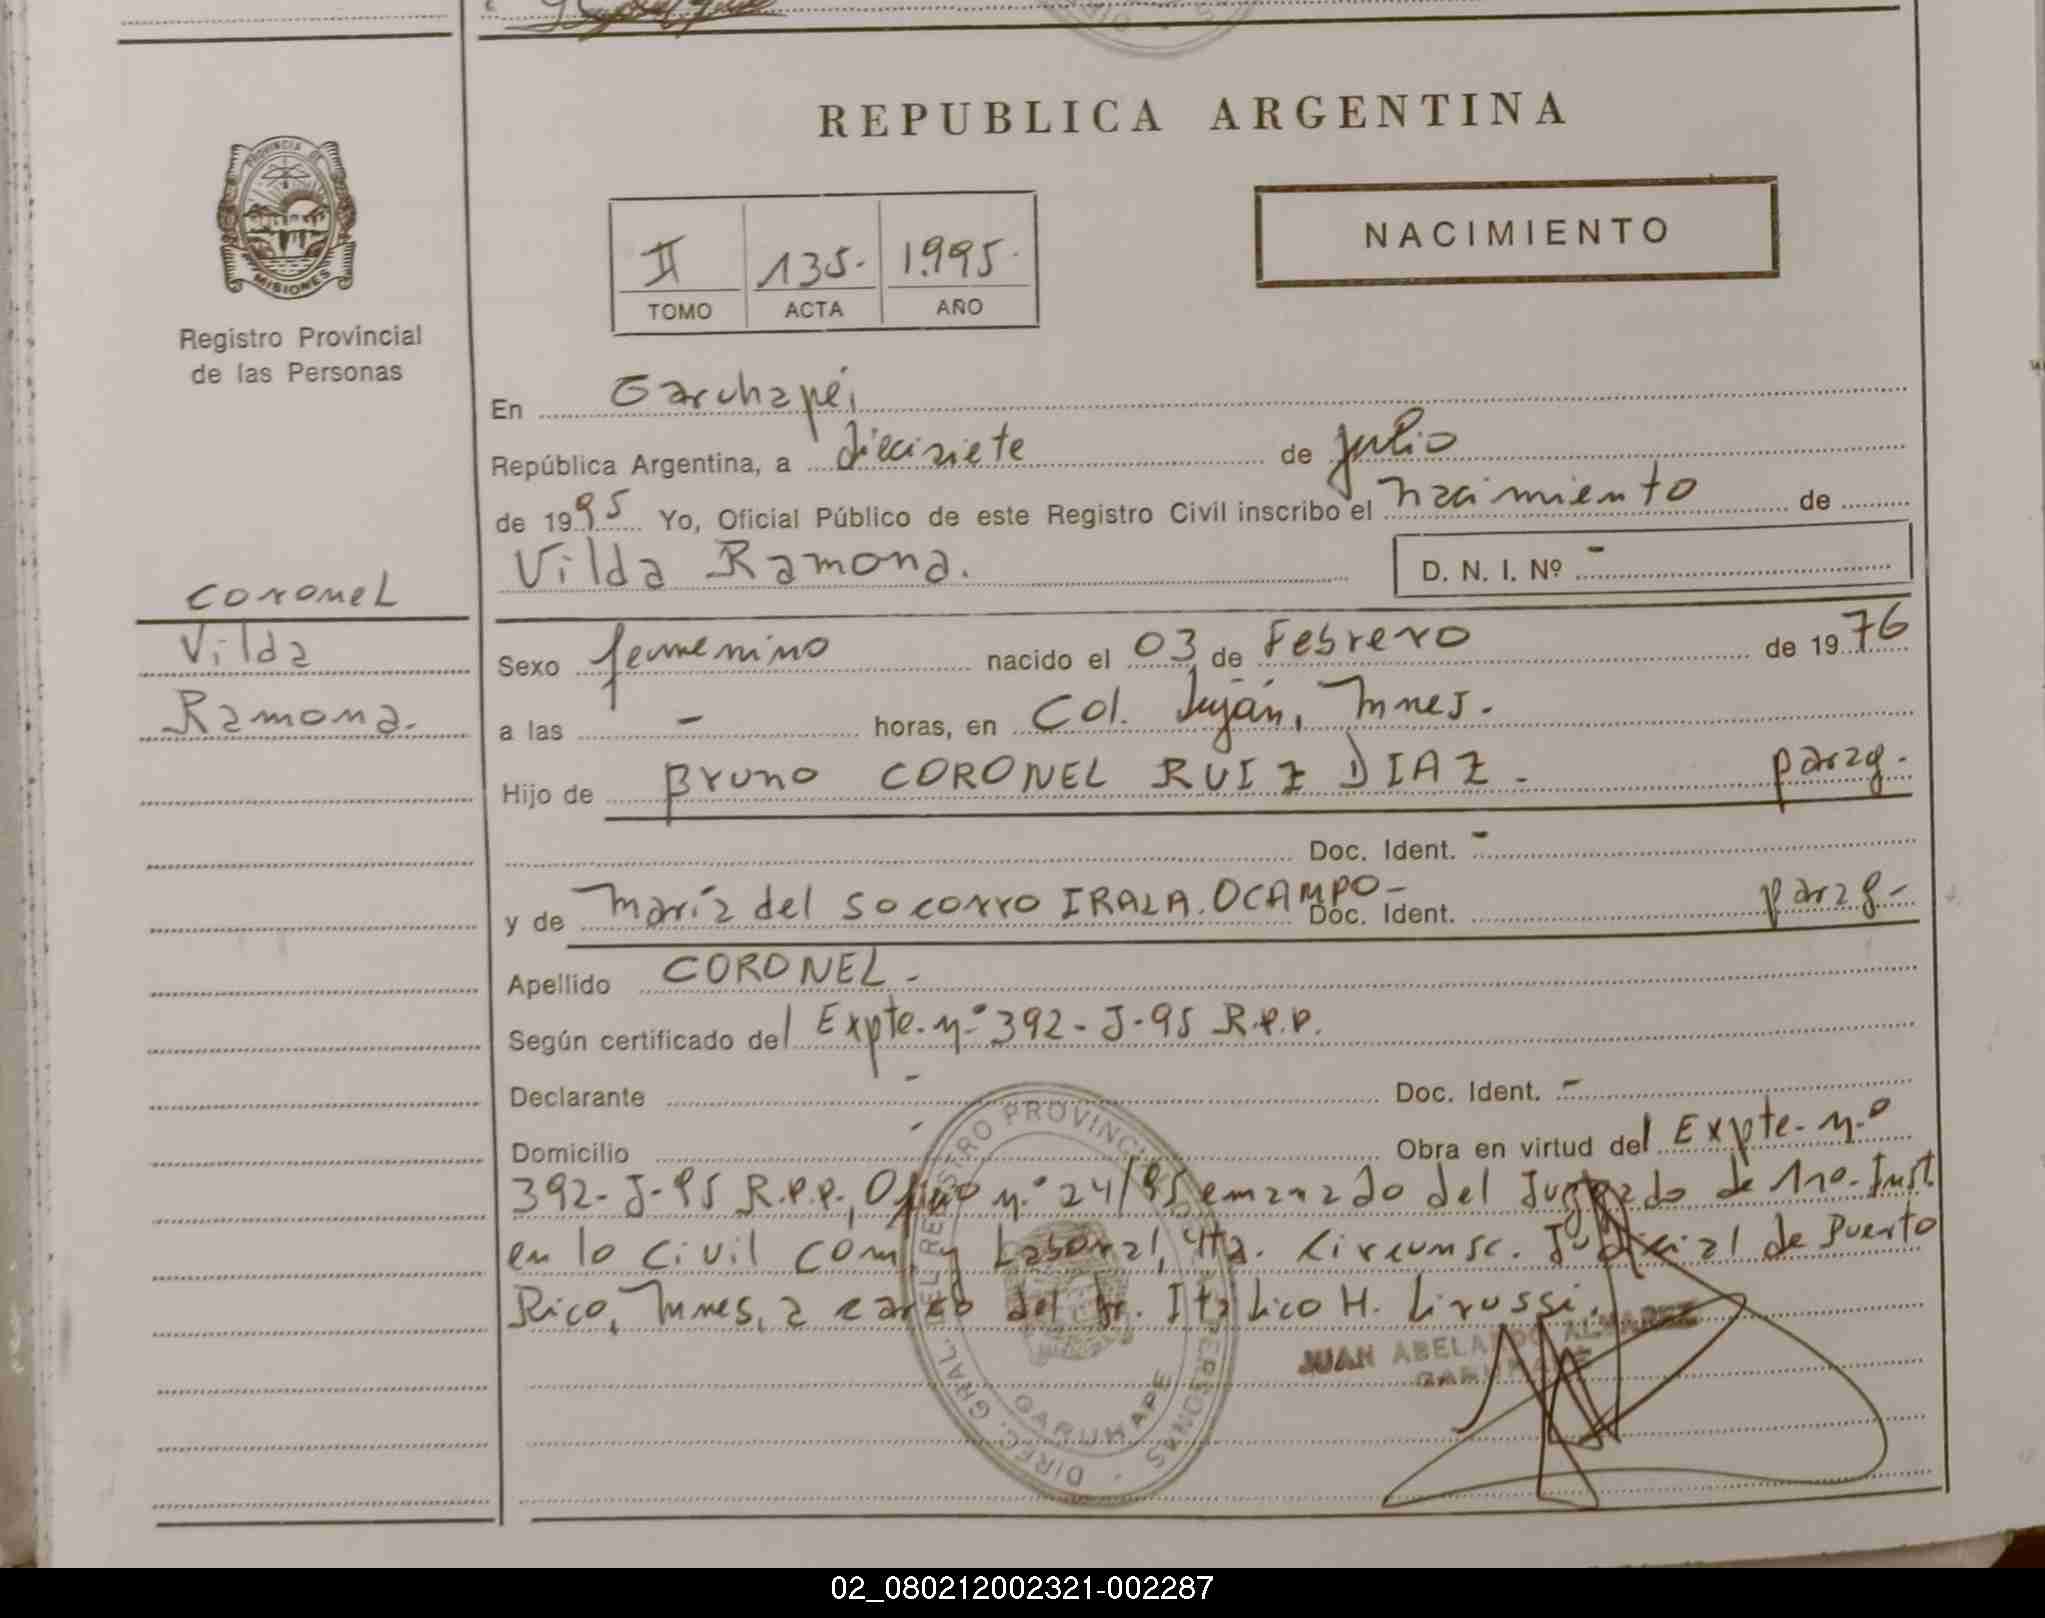 REPUBLICA ARGENTINA
NACIMIENTO
PROVINCIA DE
MISIONES
Registro Provincial
de las Personas
II 135. 1.995.
TOMO ACTA AÑO
En Garuhapé,
República Argentina, a diecisiete de julio
de 1995 Yo, Oficial Público de este Registro Civil inscribo el nacimiento de
Vilda Ramona. D. N. I. Nº -
Coronel
Vilda
Ramona.
Sexo femenino nacido el 03 de Febrero de 1976
a las - horas, en Col. Luján, Mnes.
Hijo de Bruno CORONEL RUIZ DIAZ. parag.
Doc. Ident. -
y de María del Socorro IRALA OCAMPO- Doc. Ident. parag-
Apellido CORONEL-
Según certificado del Expte. n.º 392-J-95 R.P.P.
Declarante - Doc. Ident. -
Domicilio - Obra en virtud del Expte. n.º
392-J-95 R.P.P., Oficio n.º 24/95 emanado del Juzgado de 1ro. Inst.
en lo Civil Com. y Laboral, 4ta. Circunsc. Judicial de Puerto
Rico, Mnes, a cargo del Dr. Itálico H. Lirussi.
JUAN ABELARDO ALVAREZ
GARUHAPE
DIREC. GRAL. DEL REGISTRO PROVINCIAL DE LAS PERSONAS
GARUHAPE
02_080212002321-002287